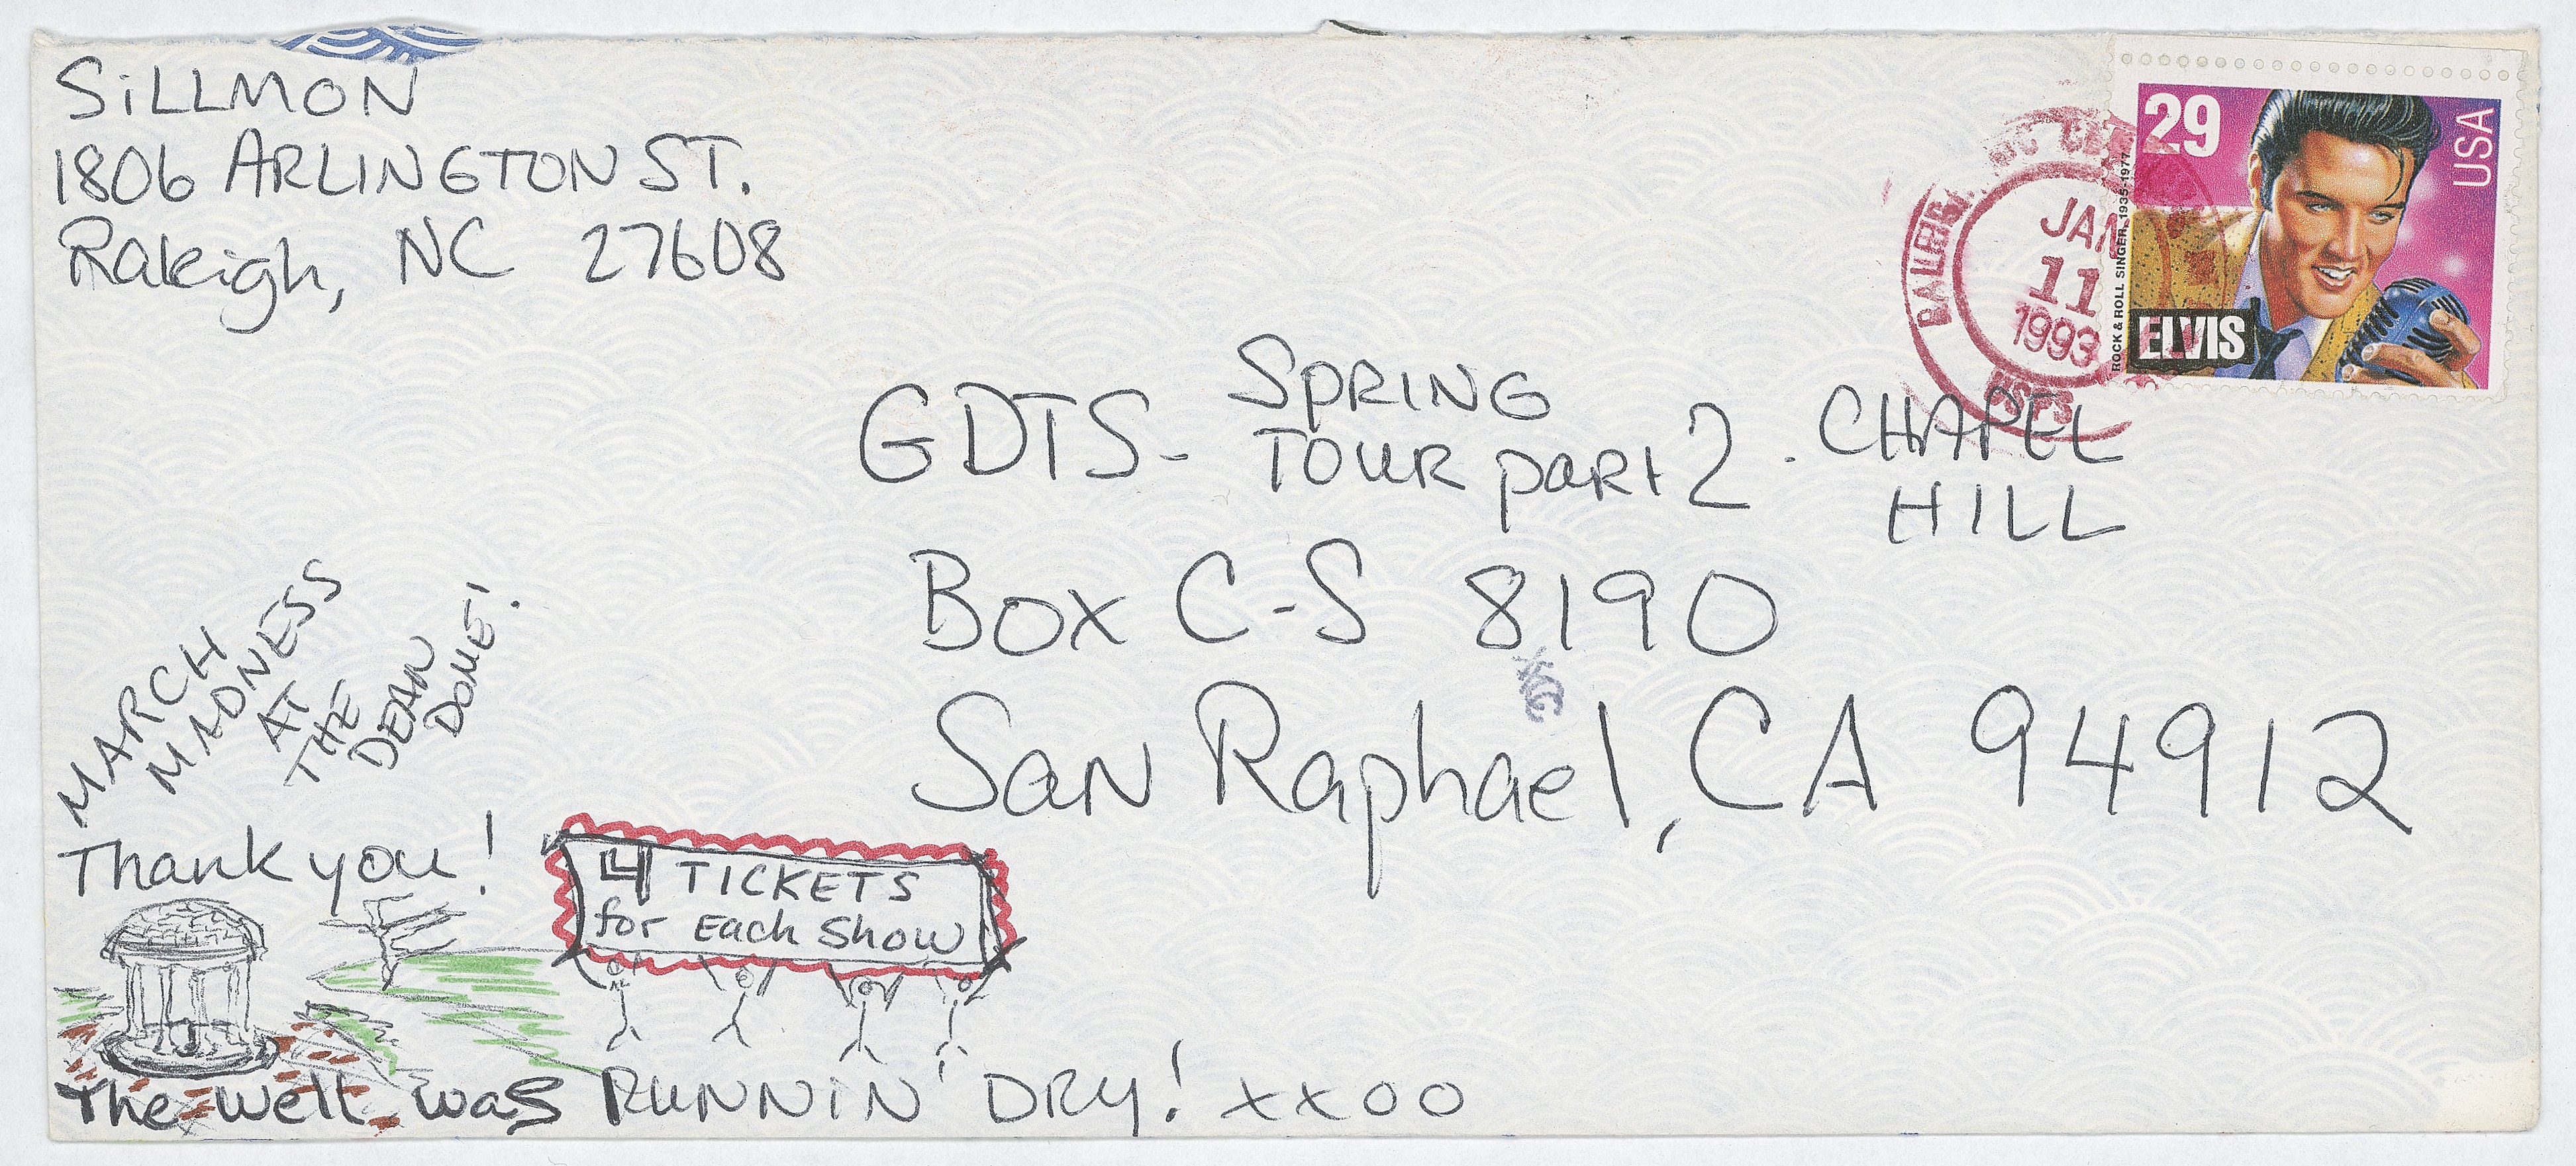 SiLLMON
1806 ARLINGTON ST.
Raleigh, NC 27608
29
USA
ROCK & ROLL SINGER, 1935-1977
ELVIS
JAN
11
1993
USPS
GDTS- SPRING TOUR part 2 - CHAPEL HILL
Box C-S 8190
San Raphael, CA 94912
MARCH
MADNESS
AT
THE
DEAN
DOME!
Thank you!
4 TICKETS
for Each Show
The well was RUNNIN' DRY! xxoo